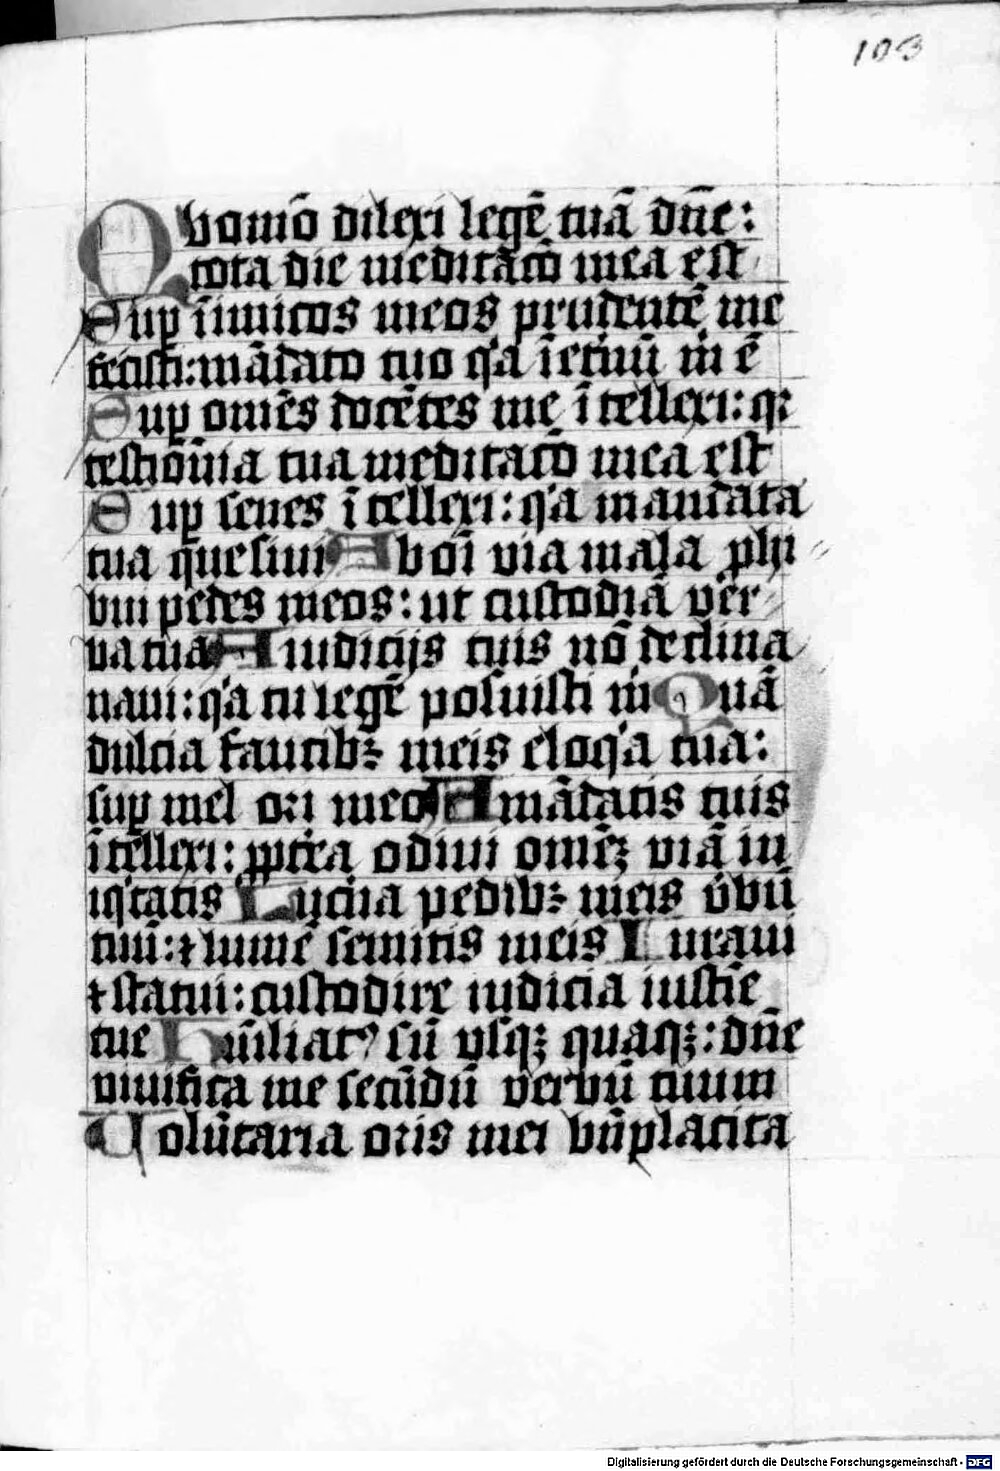 103
Quomō dilexi legē tuā dn̄e:
tota die meditac̄o mea est
Sup īimicos meos prudentē me
fecisti: mādato tuo qͥa ī etnū m̄ ē
Sup omēs docētes me ītellexi: qꝛ
testiōn̄ia tua meditac̄o mea est
Sup senes ītellexi: qͥa mandata
tua quesiui Ab oī via mala ꝓhi
bui pedes meos: ut custodiā ver
ba tua A iudicijs tuis nō declina
naui: qͥa tu legē posuisti m̄ Quā
dulcia faucibꝫ meis eloqͥa tua:
sup mel ori meo A mādatis tuis
ītellexi: ꝓpterea odiui omēꝫ viā in
iqͥtatis Lucerna pedibꝫ meis v̄bū
tuū: ⁊ lumē semitis meis Iuraui
⁊ statui: custodire iudicia iustīe
tue Hūiliatꝰ sū vsqꝫ quaqꝫ: dn̄e
viuifica me secūdū verbū tuum
Volūtaria oris mei bn̄placita
Digitalisierung gefördert durch die Deutsche Forschungsgemeinschaft - DFG